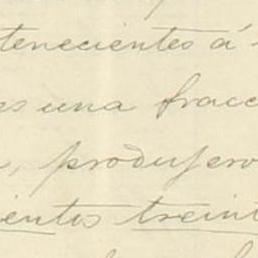 tenecientes á
es una fracc
, produjero
ientos treint